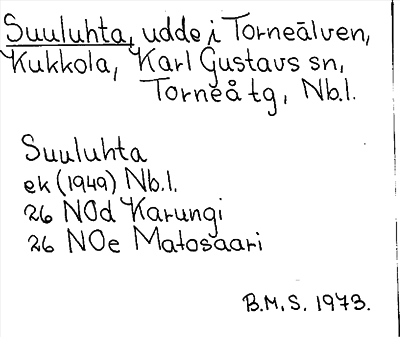 Suuluhta, udde i Torneälven,
Kukkola, Karl Gustavs sn,
Torneå tg, Nb.l.
Suuluhta
ek (1949) Nb.l.
26 NOd Karungi
26 NOe Matosaari
B.M.S. 1973.